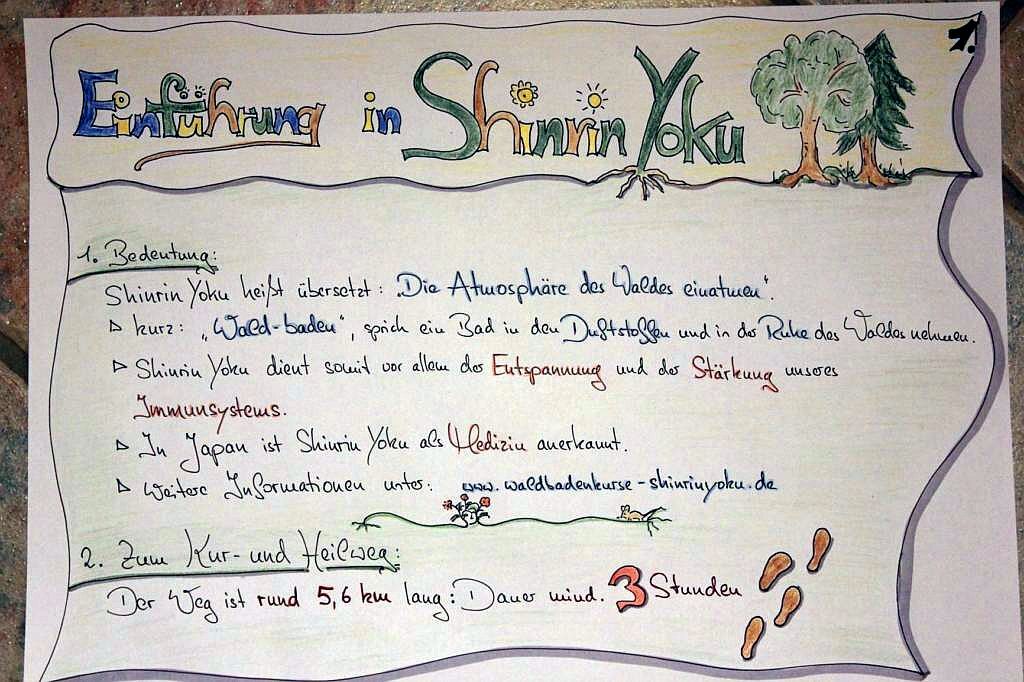 Einführung in Shinrin Yoku
1.
1. Bedeutung:
Shinrin Yoku heißt übersetzt: „Die Atmosphäre des Waldes einatmen“.
▷ kurz: „Wald-baden“, sprich ein Bad in den Duftstoffen und in der Ruhe des Waldes nehmen.
▷ Shinrin Yoku dient somit vor allem der Entspannung und der Stärkung unseres
Immunsystems.
▷ In Japan ist Shinrin Yoku als Medizin anerkannt.
▷ Weitere Informationen unter: www.waldbadenkurse-shinrinyoku.de
2. Zum Kur- und Heilweg:
Der Weg ist rund 5,6 km lang: Dauer mind. 3 Stunden